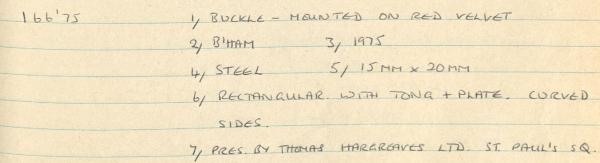 166'75 1, BUCKLE - MOUNTED ON RED VELVET
2, B'HAM 3, 1975
4, STEEL 5, 15MM x 20MM
6, RECTANGULAR WITH TONG + PLATE. CURVED
SIDES.
7, PRES. BY THOMAS HARGREAVES LTD. ST. PAUL'S SQ.